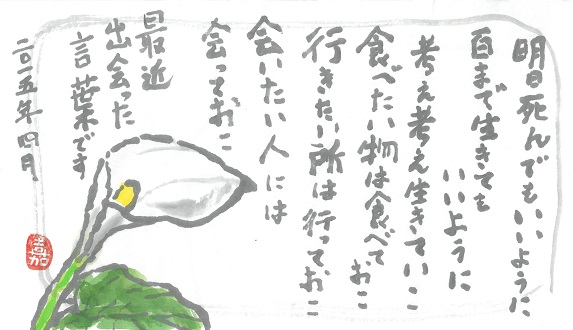 明日死んでもいいように
百まで生きても
いいように
考え考え生きていこ
食べたい物は食べて
おこ
行きたい所は行っておこ
会いたい人には
会っておこ
最近
出会った
言葉です
二〇一五年四月